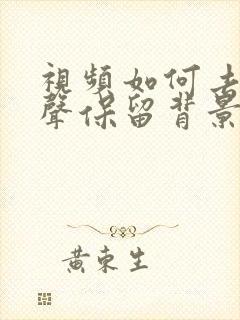 視頻如何去
聲保留背景
黃東生